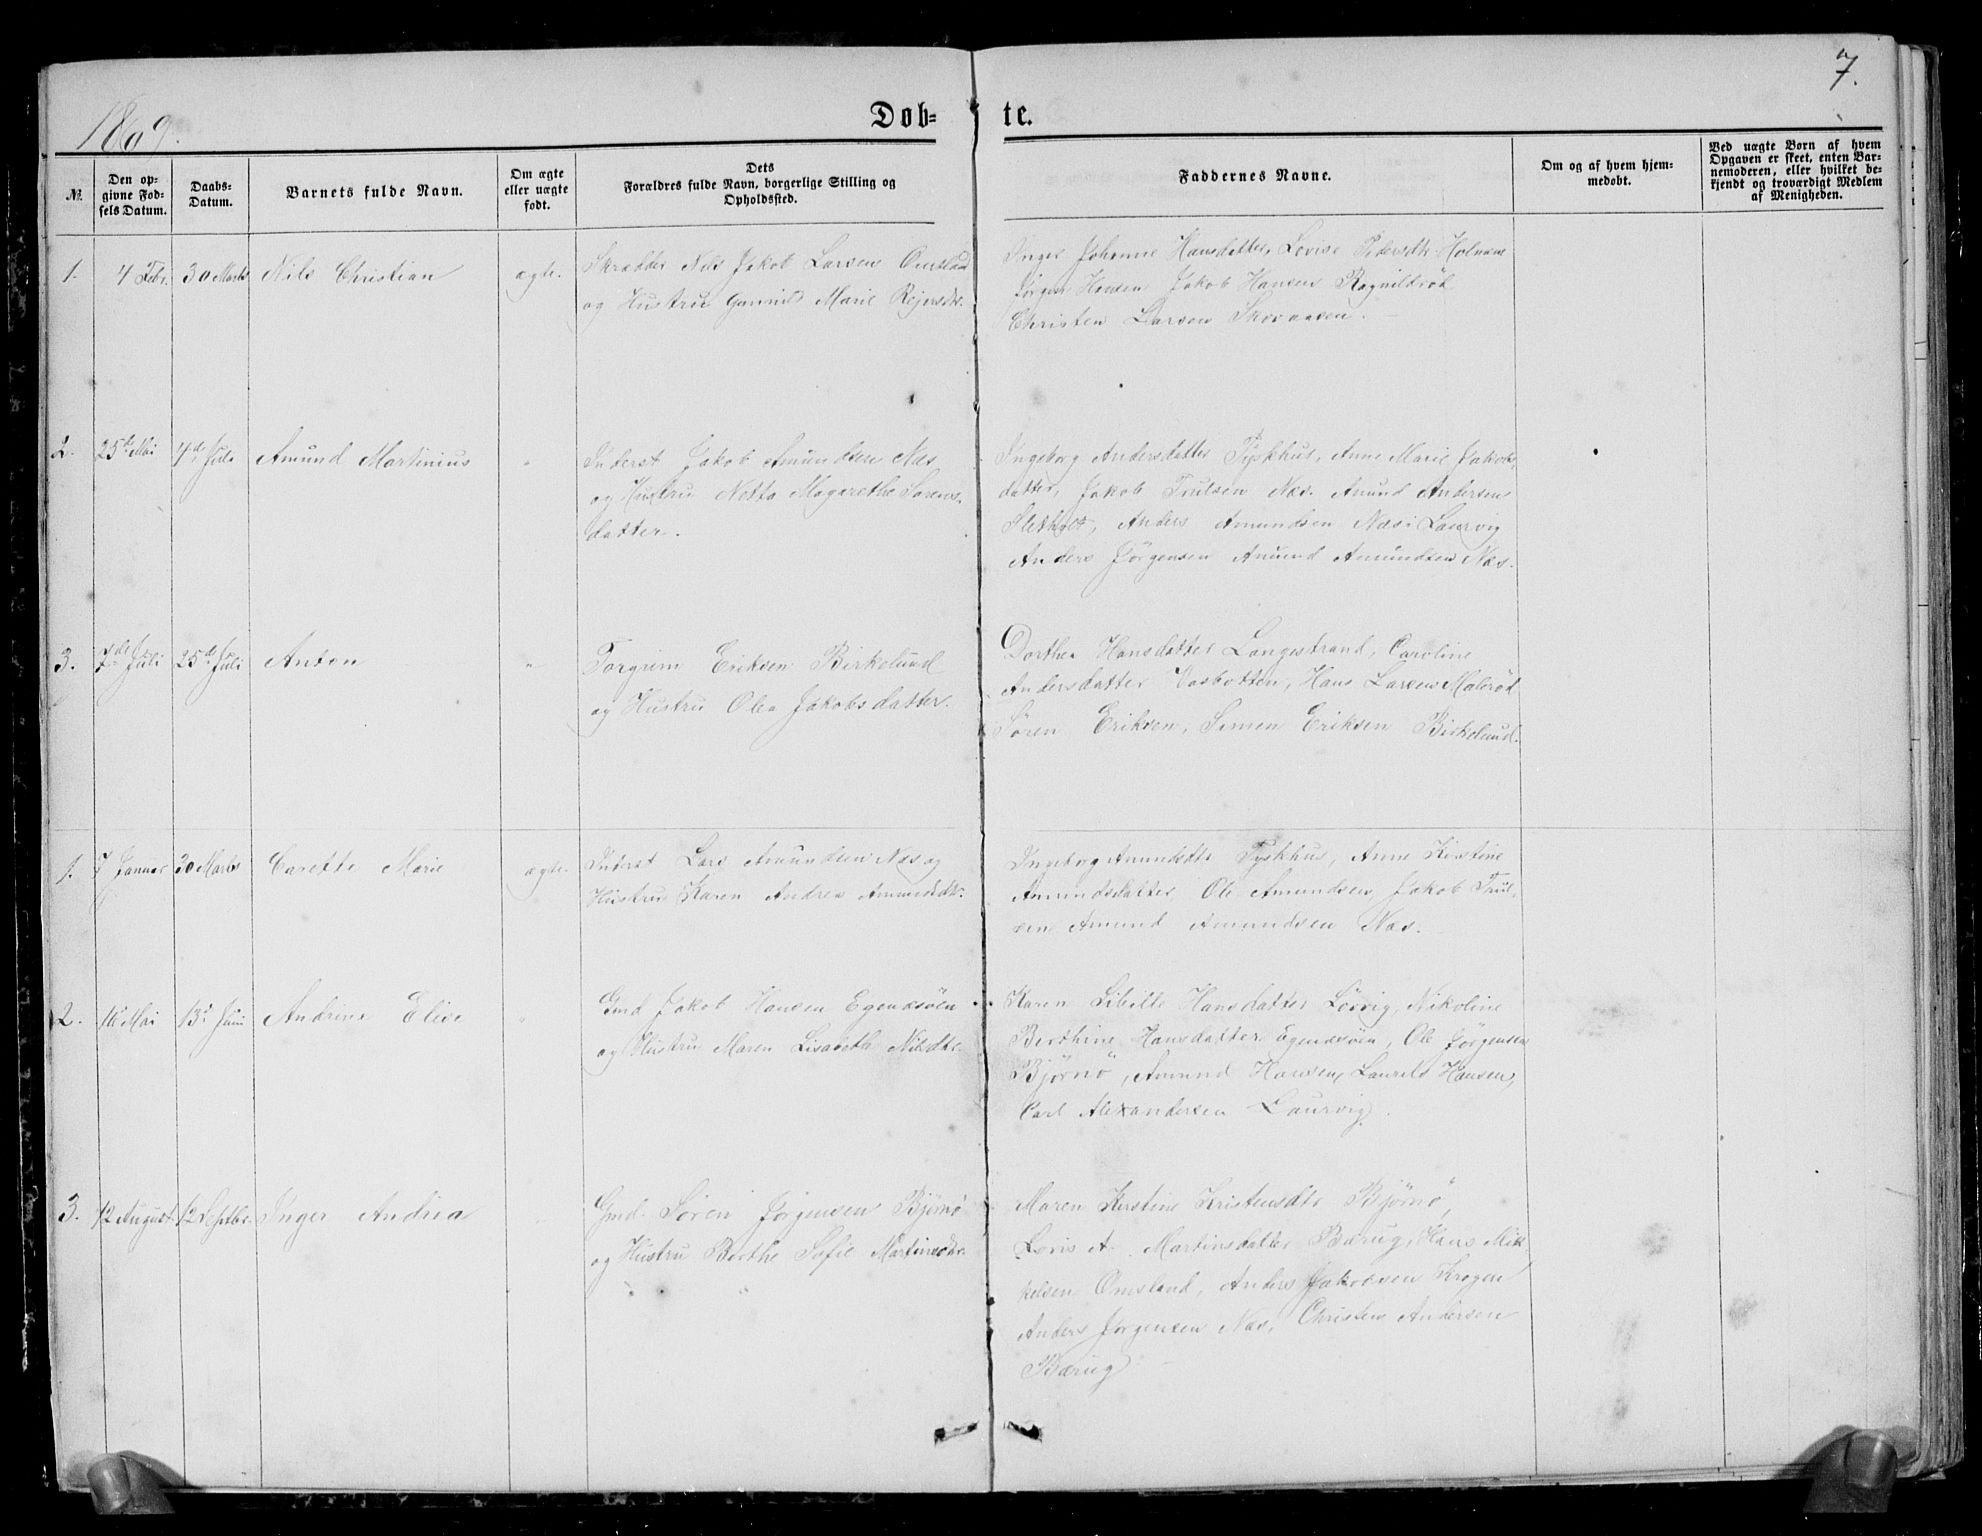 1869.
Døb=
te.
7.
№.
Den op-
givne Fød-
sels Datum.
Daabs-
Datum.
Barnets fulde Navn.
Om ægte
eller uægte
født.
Dets
Forældres fulde Navn, borgerlige Stilling og
Opholdssted.
Faddernes Navne.
Om og af hvem hjem-
medøbt.
Ved uægte Børn af hvem
Opgaven er skeet, enten Bar-
nemoderen, eller hvilket be-
kjendt og troværdigt Medlem
af Menigheden.
1. 4 Febr. 30 Marts Nils Christian ægte.
Skrædder Nils Jakob Larsen Omsland
og Hustru Gunnild Marie Rejersdtr.
Inger Johanne Hansdatter, Lovise Pedersdtr Holmene
Jørgen Hansen Jakob Hansen Ragnildrød
Christen Larsen
2. 25de Mai 4de Juli Amund Martinius "
Inderst Jakob Amundsen Næs
og Hustru Netta Magarethe Sørens-
datter.
Ingeborg Andersdatter Tyskhus, Anne Marie Jakobs
datter, Jakob Trulsen Næs. Amund Andersen
Sletholt, Anders Amundsen Næs i Laurvig
Anders Jörgensen Amund Amundsen Næs.
3. 7de Juli 25de Juli Anton "
Torgrim Eriksen Birkelund
og Hustru Olea Jakobsdatter.
Dorthea Hansdatter Langestrand, Caroline
Andersdatter Vasbotten, Hans Larsen Malerød
Sören Eriksen, Simen Eriksen Birkelund.
1. 7 Januar 30 Marts Carette Marie ægte.
Inderst Lars Amundsen Næs og
Hustru Karen Andrea Amundsdtr.
Ingeborg Amundsdtr Tyskhus, Anne Kirstine
Amundsdatter Ole Amundsen, Jakob Trul-
sen Amund Amundsen Næs.
2. 16 Mai 13de Juni Andrine Elise "
Gmd Jakob Hansen Egenæsöen
og Hustru Maren Lisabeth Nilsdtr.
Karen Sibille Hansdatter Lövig, Nikoline
Berthine Hansdatter Egenæsöen, Ole Jörgensen
Björnö, Amund Hansen, Laurits Hansen,
Carl Alexandersen Laurvig.
3. 12 August 12 Septbr. Inger Andrea "
Gmd. Sören Jörgensen Björnö
og Hustru Berthe Sofie Martinsdtr.
Maren Kirstine Kristensdtr Björnö,
Lovis A. Martinsdatter Bærug, Hans Mik
kelsen Omsland, Anders Jakobsen Krogen
Anders Jörgensen Næs, Christen Andersen
Bærug